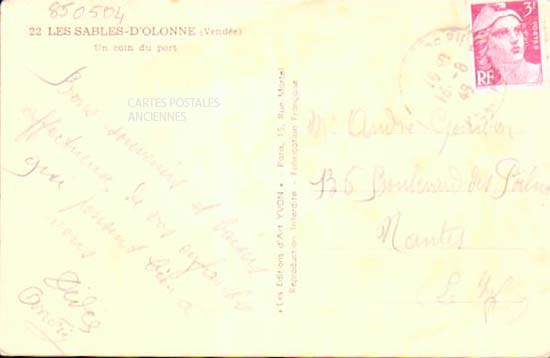 850504
22 LES SABLES-D'OLONNE (Vendée)
Un coin du port
CARTES POSTALES
ANCIENNES
Bons souvenirs et baisers
affectueux de vos enfants
qui pensent bien à
vous
André
• Les Editions d'Art YVON • Paris, 15, Rue Martel
Reproduction Interdite - Fabrication Française
3F
POSTES
RF
André
136 Boulevard des
Nantes
L. Inf